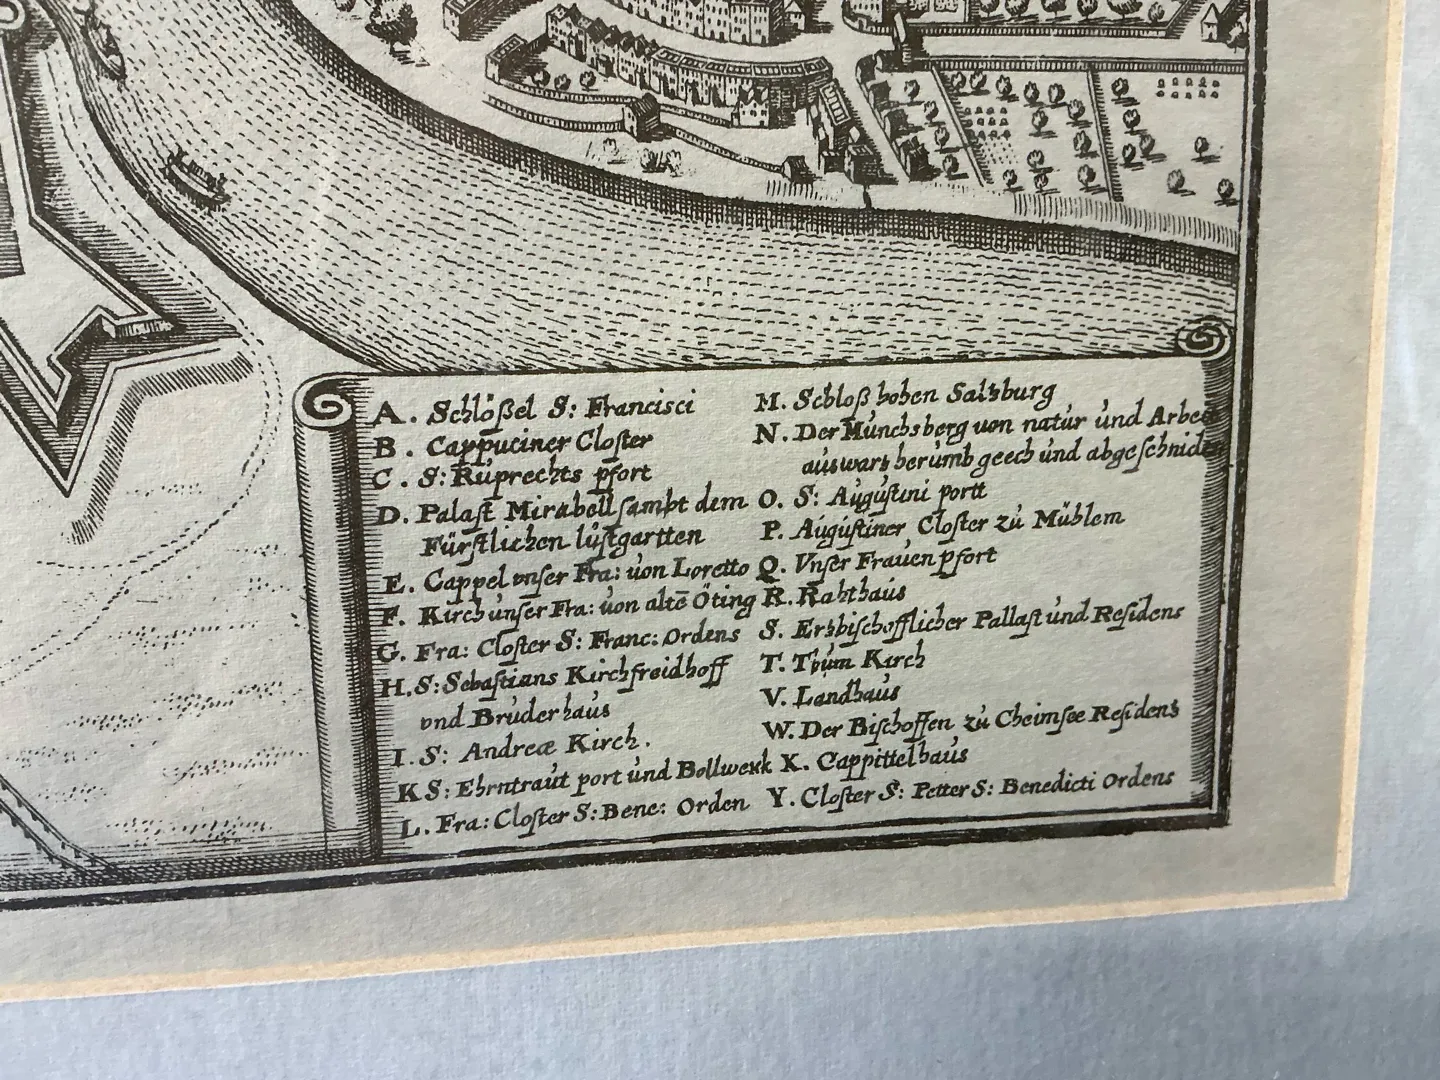 A. Schlößel S: Francisci
B. Cappuciner Closter
C. S: Ruprechts pfort
D. Palast Mirabell sambt dem
Fürstlichen lustgartten
E. Cappel vnser Fra: von Loretto
F. Kirch unser Fra: von altē Öting
G. Fra: Closter S: Franc: Ordens
H. S: Sebastians Kirchfreidhoff
vnd Bruderhaus
I. S: Andreæ Kirch.
K S: Ehrntraut port und Bollwerk
L. Fra: Closter S: Bene: Orden
M. Schloß hohen Saltzburg
N. Der Münchsberg von natur und Arbeit
auswarts herumb geech und abgeschniden
O. S: Augustini portt
P. Augustiner Closter zu Mühlem
Q. Vnser Frauen pfort
R. Rahthaus
S. Ertzbischofflicher Pallast und Residens
T. Thum Kirch
V. Landhaus
W. Der Bischoffen zu Cheimsee Residens
X. Cappittelhaus
Y. Closter S: Petter S: Benedicti Ordens